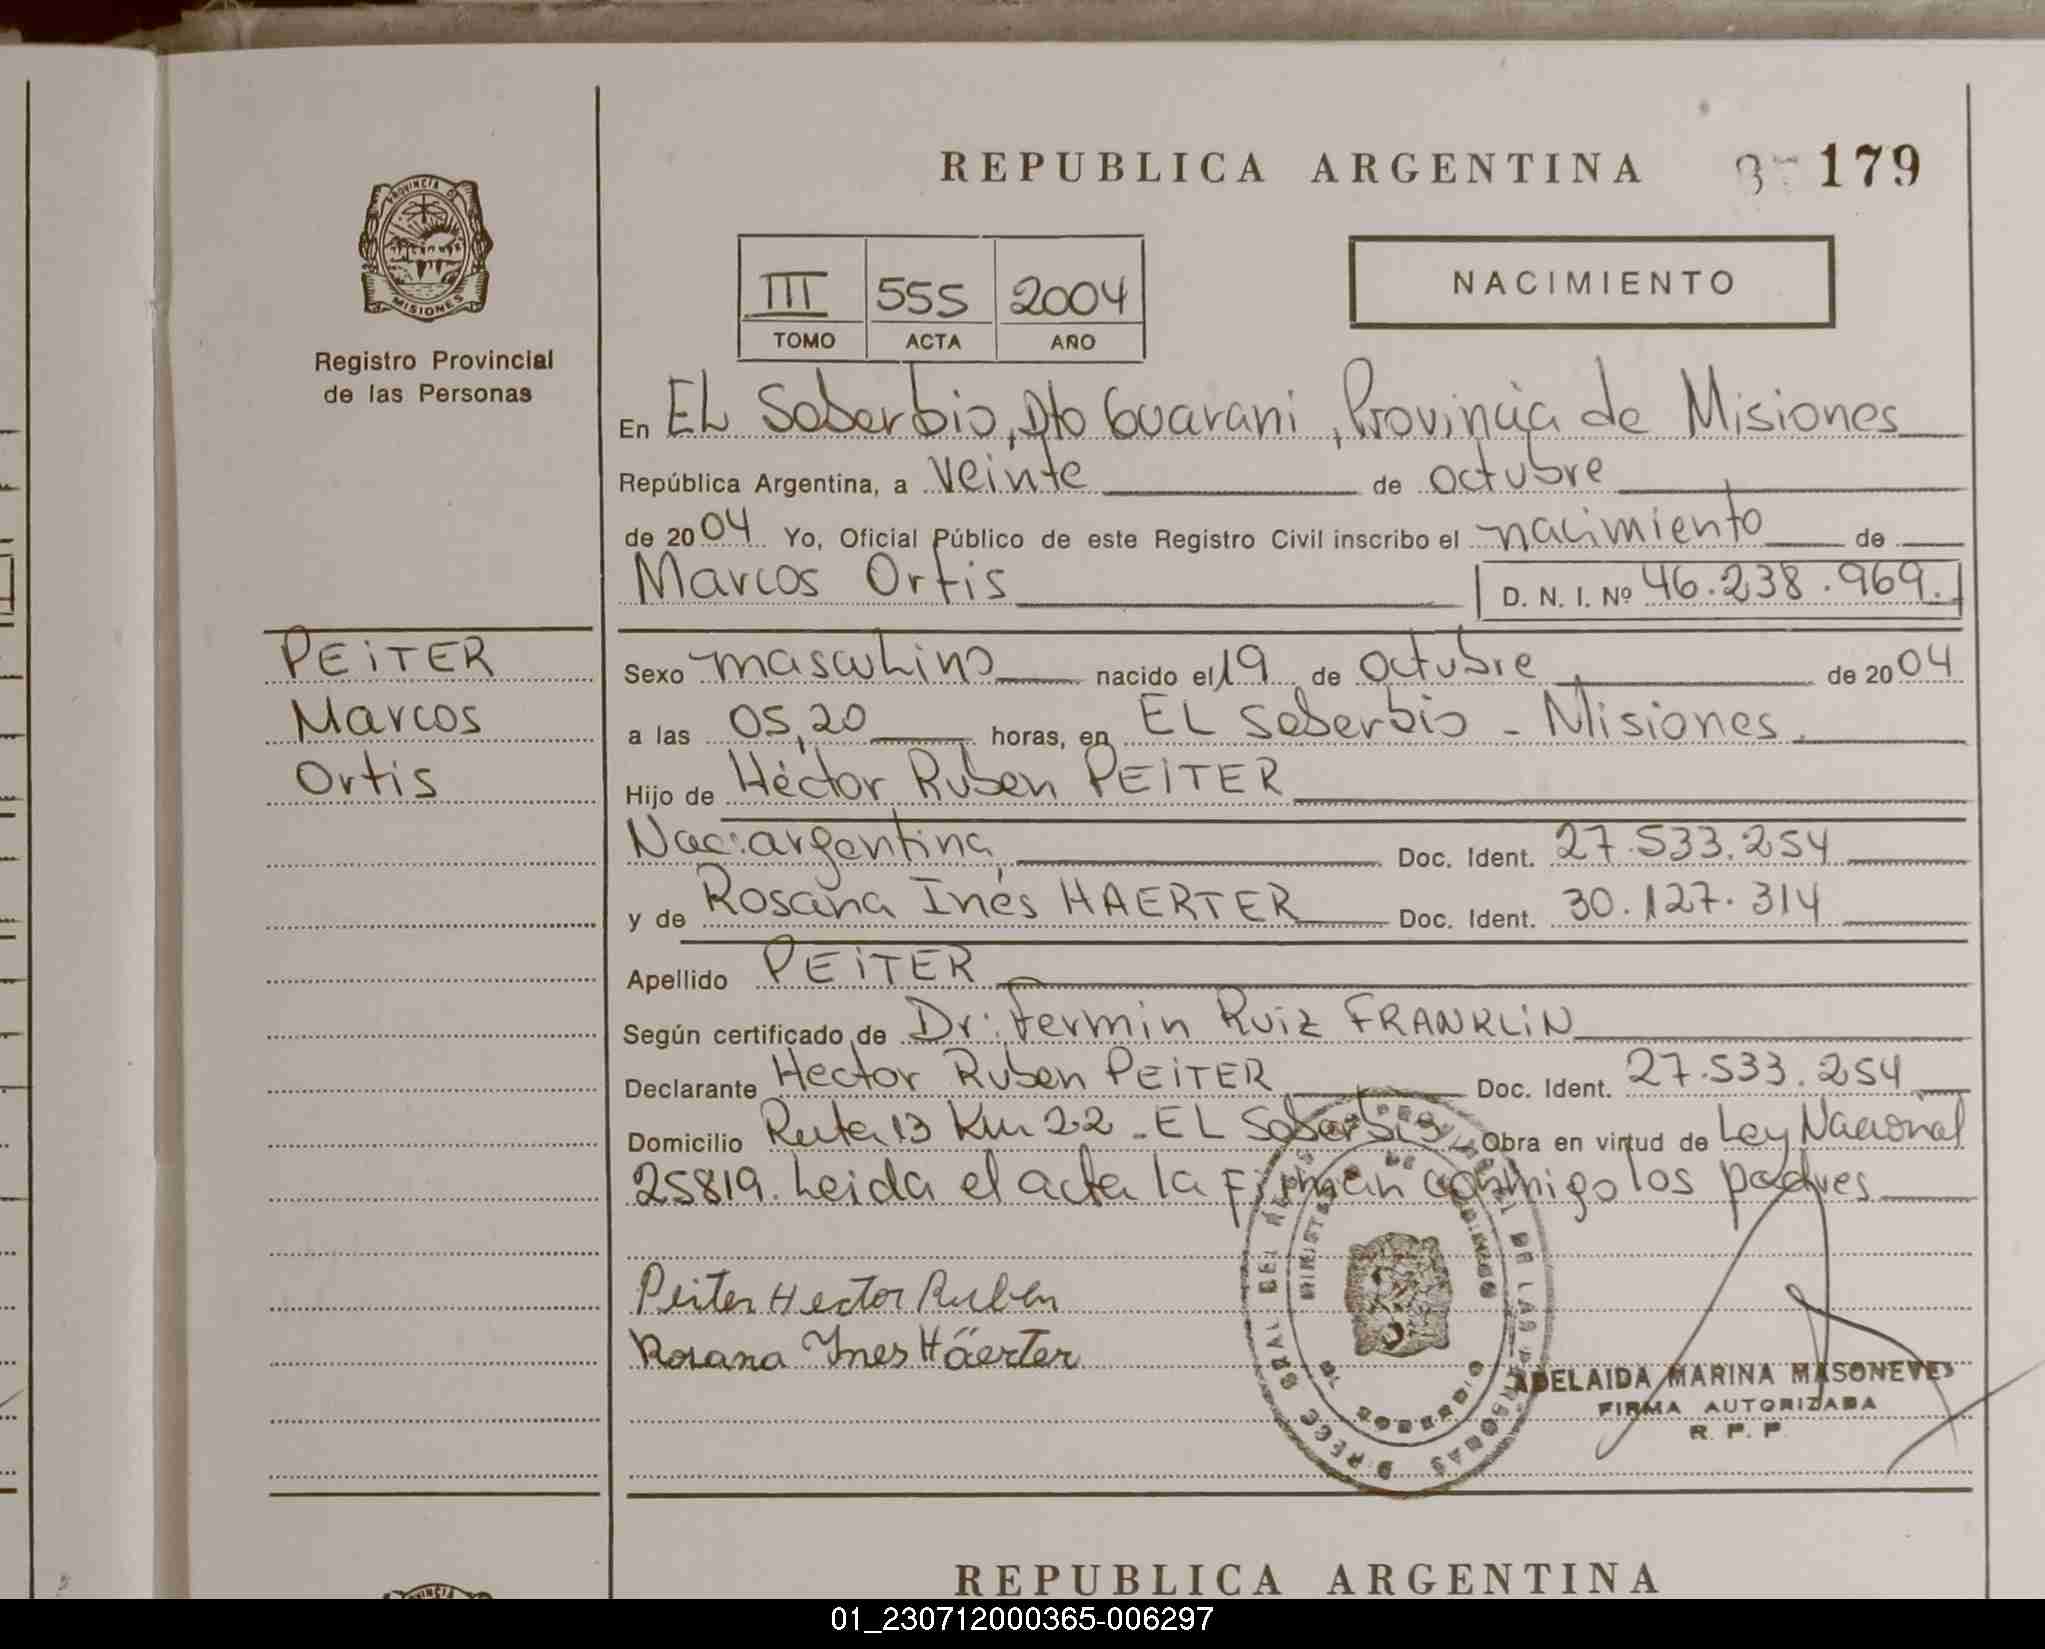 REPUBLICA ARGENTINA
179
PROVINCIA DE
MISIONES
Registro Provincial
de las Personas
III 555 2004
TOMO ACTA AÑO
NACIMIENTO
En EL Soberbio, Dto Guarani, Provincia de Misiones
República Argentina, a veinte de octubre
de 2004 Yo, Oficial Público de este Registro Civil inscribo el nacimiento de
Marcos Ortis D. N. I. Nº 46.238.969.
PEITER
Marcos
Ortis
Sexo masculino nacido el 19 de octubre de 2004
a las 05,20 horas, en EL Soberbio - Misiones.
Hijo de Héctor Ruben PEITER
Nac: argentina, Doc. Ident. 27.533.254
y de Rosana Inés HAERTER Doc. Ident. 30.127.314
Apellido PEITER
Según certificado de Dr: Fermin Ruiz FRANKLIN
Declarante Hector Ruben PEITER Doc. Ident. 27.533.254
Domicilio Ruta 13 Km 22 - EL Soberbio Obra en virtud de Ley Nacional
25819. Leida el acta la firman conmigo los padres
Peiter Hector Ruben
Rosana Ynes Häerter
ADELAIDA MARINA MASONEVES
FIRMA AUTORIZADA
R. P. P.
REPUBLICA ARGENTINA
01_230712000365-006297